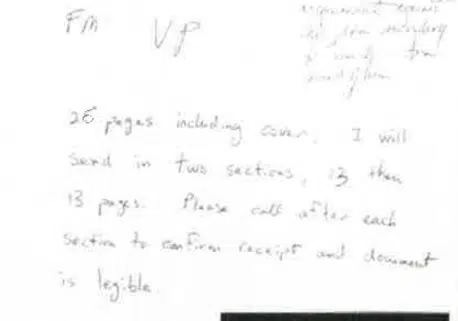 FM VP
26 pages including cover. I will
send in two sections, 13 then
13 pages. Please call after each
section to confirm receipt and document
is legible.